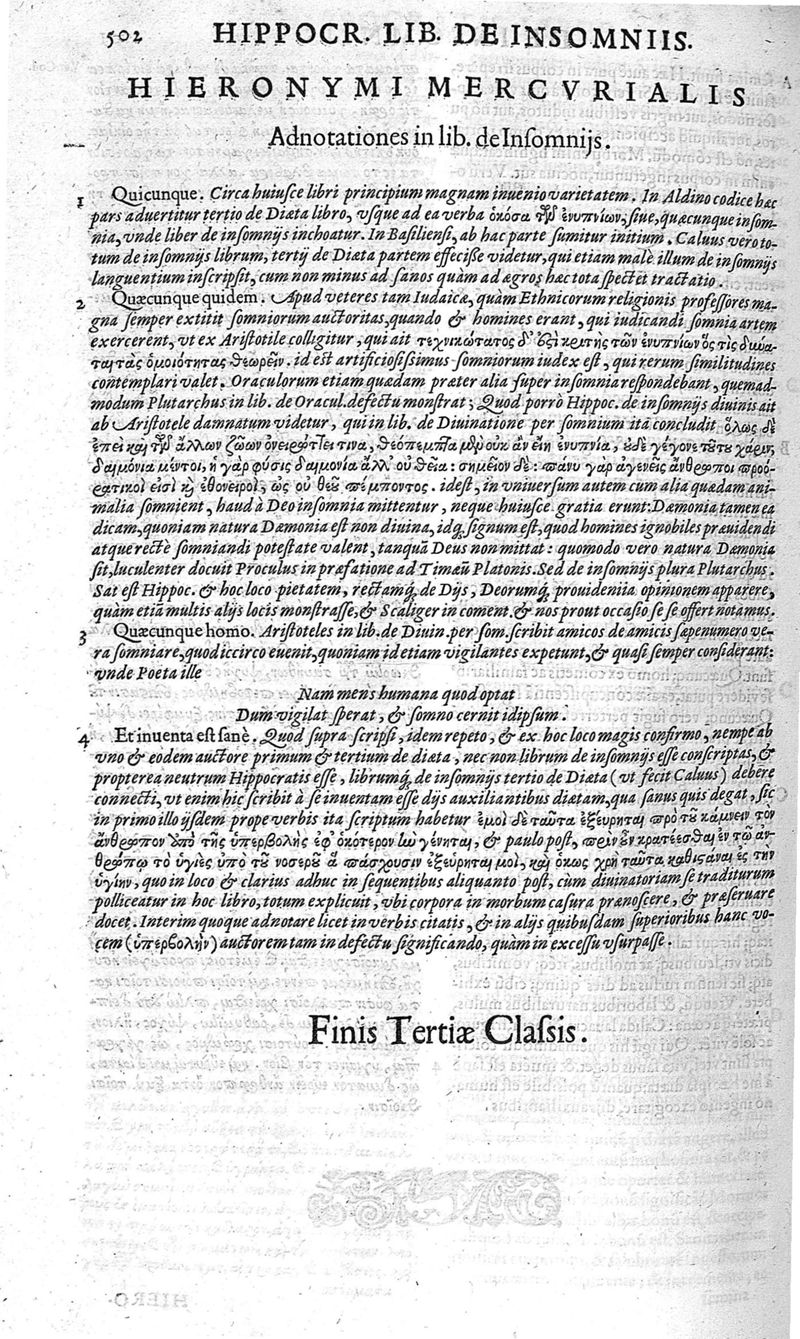 502 HIPPOCR. LIB. DE INSOMNIIS.
HIERONYMI MERCVRIALIS
Adnotationes in lib. de Inſomnijs.
1 Quicunque. Circa huiuſce libri principium magnam inuenio varietatem. In Aldino codice hæc
pars aduertitur tertio de Diæta libro, vſque ad ea verba ὁκόσα τῶν ἐνυπνίων, ſiue, quæcunque inſom-
nia, vnde liber de inſomnijs inchoatur. In Baſilienſi, ab hac parte ſumitur initium. Caluus vero to-
tum de inſomnijs librum, tertij de Diæta partem effeciſſe videtur, qui etiam malè illum de inſomnijs
languentium inſcripſit, cum non minus ad ſanos quàm ad ægros hæc tota ſpectet tractatio.
2 Quæcunque quidem. Apud veteres tam Iudaicæ, quàm Ethnicorum religionis profeſſores ma-
gna ſemper extitit ſomniorum auctoritas, quando & homines erant, qui iudicandi ſomnia artem
exercerent, vt ex Ariſtotile colligitur, qui ait τεχνικώτατος δ' ἐστὶ κριτὴς τῶν ἐνυπνίων ὅς τις δύνα-
ται τὰς ὁμοιότητας θεωρεῖν. id est artificioſiſsimus ſomniorum iudex eſt, qui rerum ſimilitudines
contemplari valet. Oraculorum etiam quædam præter alia ſuper inſomnia reſpondebant, quemad-
modum Plutarchus in lib. de Oracul. defectu monſtrat; Quod porrò Hippoc. de inſomnijs diuinis ait
ab Ariſtotele damnatum videtur, qui in lib. de Diuinatione per ſomnium ità concludit ὅλως δὲ
ἐπεὶ καὶ τῶν ἄλλων ζώων ὀνειρώττει τινα, θεόπεμπτα μὲν οὐκ ἂν εἴη ἐνυπνία, οὐδὲ γέγονε τούτου χάριν,
δαιμόνια μέντοι, ἡ γὰρ φύσις δαιμονία ἀλλ' οὐ θεία: σημεῖον δέ: πάνυ γὰρ ἀγενεῖς ἄνθρωποι προό-
ρατικοί εἰσι καὶ εθονειροι, ὡς οὐ θεοῦ πέμποντος. idest, in vniuerſum autem cum alia quædam ani-
malia ſomnient, haud à Deo inſomnia mittentur, neque huiuſce gratia erunt: Dæmonia tamen ea
dicam, quoniam natura Dæmonia est non diuina, idq́; ſignum eſt, quod homines ignobiles præuidendi
atque rectè ſomniandi poteſtate valent, tanquã Deus non mittat: quomodo vero natura Dæmonia
ſit, luculenter docuit Proculus in præfatione ad Timæũ Platonis. Sed de inſomnijs plura Plutarchus.
Sat eſt Hippoc. & hoc loco pietatem, rectamq́; de Dijs, Deorumq́; prouidenitia opinionem apparere,
quàm etiã multis alijs locis monſtraſſe, & Scaliger in coment. & nos prout occaſio ſe ſe offert notamus.
3 Quæcunque homo. Ariſtoteles in lib. de Diuin. per ſom. ſcribit amicos de amicis ſæpenumero ve-
ra ſomniare, quod iccirco euenit, quoniam id etiam vigilantes expetunt, & quaſi ſemper conſiderant:
vnde Poeta ille
Nam mens humana quod optat
Dum vigilat ſperat, & ſomno cernit idipſum.
4 Et inuenta eſt ſanè. Quod ſupra ſcripſi, idem repeto, & ex hoc loco magis confirmo, nempe ab
vno & eodem auctore primum & tertium de diæta, nec non librum de inſomnijs eſſe conſcriptas, &
propterea neutrum Hippocratis eſſe, librumq́; de inſomnijs tertio de Diæta (vt fecit Caluus) debere
connecti, vt enim hic ſcribit à ſe inuentam eſſe dijs auxiliantibus diætam, qua ſanus quis degat, ſic
in primo illo ijſdem prope verbis ita ſcriptum habetur ἐμοὶ δὲ ταῦτα ἐξεύρηται πρὸ τοῦ κάμνειν τὸν
ἄνθρωπον ὑπὸ τῆς ὑπερβολῆς ἐφ' ὁκότερον ἂν γένηται, & paulo post, πρὶν οὖν κρατέεσθαι ἐν τῷ ἀν-
θρώπῳ τὸ ὑγιὲς ὑπὸ τοῦ νοσεροῦ ἃ πάσχουσιν ἐξεύρηται μοι, καὶ ὅκως χρὴ ταῦτα καθιστάναι ἐς τὴν
ὑγίην, quo in loco & clarius adhuc in ſequentibus aliquanto poſt, cùm diuinatoriam ſe traditurum
polliceatur in hoc libro, totum explicuit, vbi corpora in morbum caſura prænoſcere, & præſeruare
docet. Interim quoque adnotare licet in verbis citatis, & in alijs quibuſdam ſuperioribus hanc vo-
cem (ὑπερβολὴν) auctorem tam in defectu ſignificando, quàm in exceſſu vſurpaſſe.
Finis Tertiæ Claſsis.